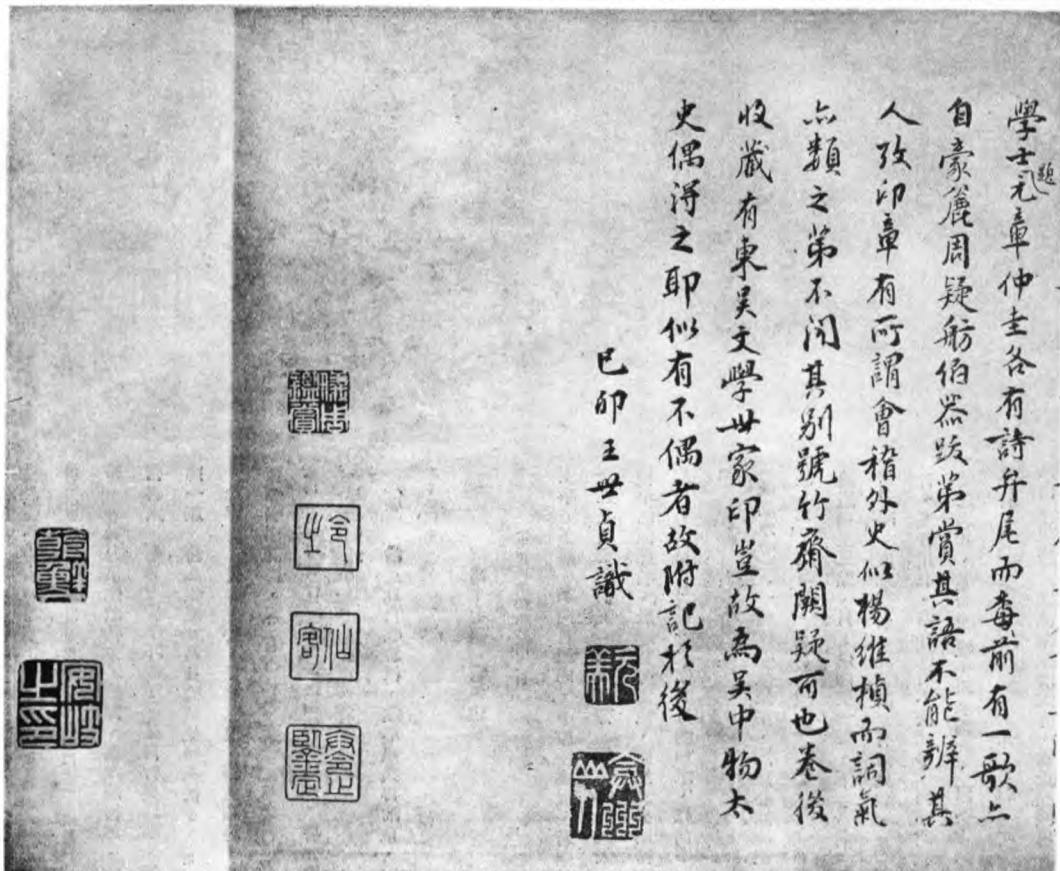 學士元章仲圭各有詩弁尾而每前有一歌亦
題
自豪麗周疑舫伯器跋第賞其語不能辨其
人攷印章有所謂會稽外史似楊維楨而詞氣
亦類之第不聞其別號竹齋闕疑可也卷後
收藏有東吳文學世家印豈故為吳中物太
史偶得之耶似有不偶者故附記於後
己卯王世貞識
元美
弇州山人
儀周鑒賞
冷之
仙客